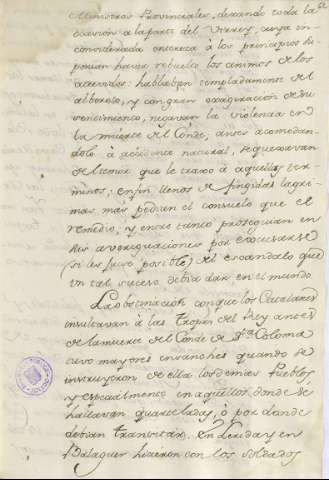 Ministros Provinciales, dexando toda la
ocasion a la parte del Virrey, cuya in-
considerada entereza à los principios de-
cian havia rebuelto los animos de los
hablaban templadamente del
alboroto, y con gran exageracion de su
vencimiento, negavan la violencia en
la muerte del Conde, antes acomodan-
dolo à accidente natural, se quexavan
del temor que le traxo à aquellos ter-
minos; enfin llenos de fingidas lagri-
mas mas pedian el consuelo que el
remedio, y entre tanto proseguian en
sus averiguaciones por escusarse
(si les fuese posible) del escandalo que
un tal suceso debia dar en el mundo.
La obstinacion con que los Catalanes
insultavan à las Tropas del Rey antes
de la muerte del Conde de Sta. Coloma
tuvo mayores ensanches quando se
instruyeron de ella los demas Pueblos
y especialmente en aquellos donde se
hallavan quarteladas, ò por donde
debian transitar. En Lerida y en
Balaguer hicieron con los soldados